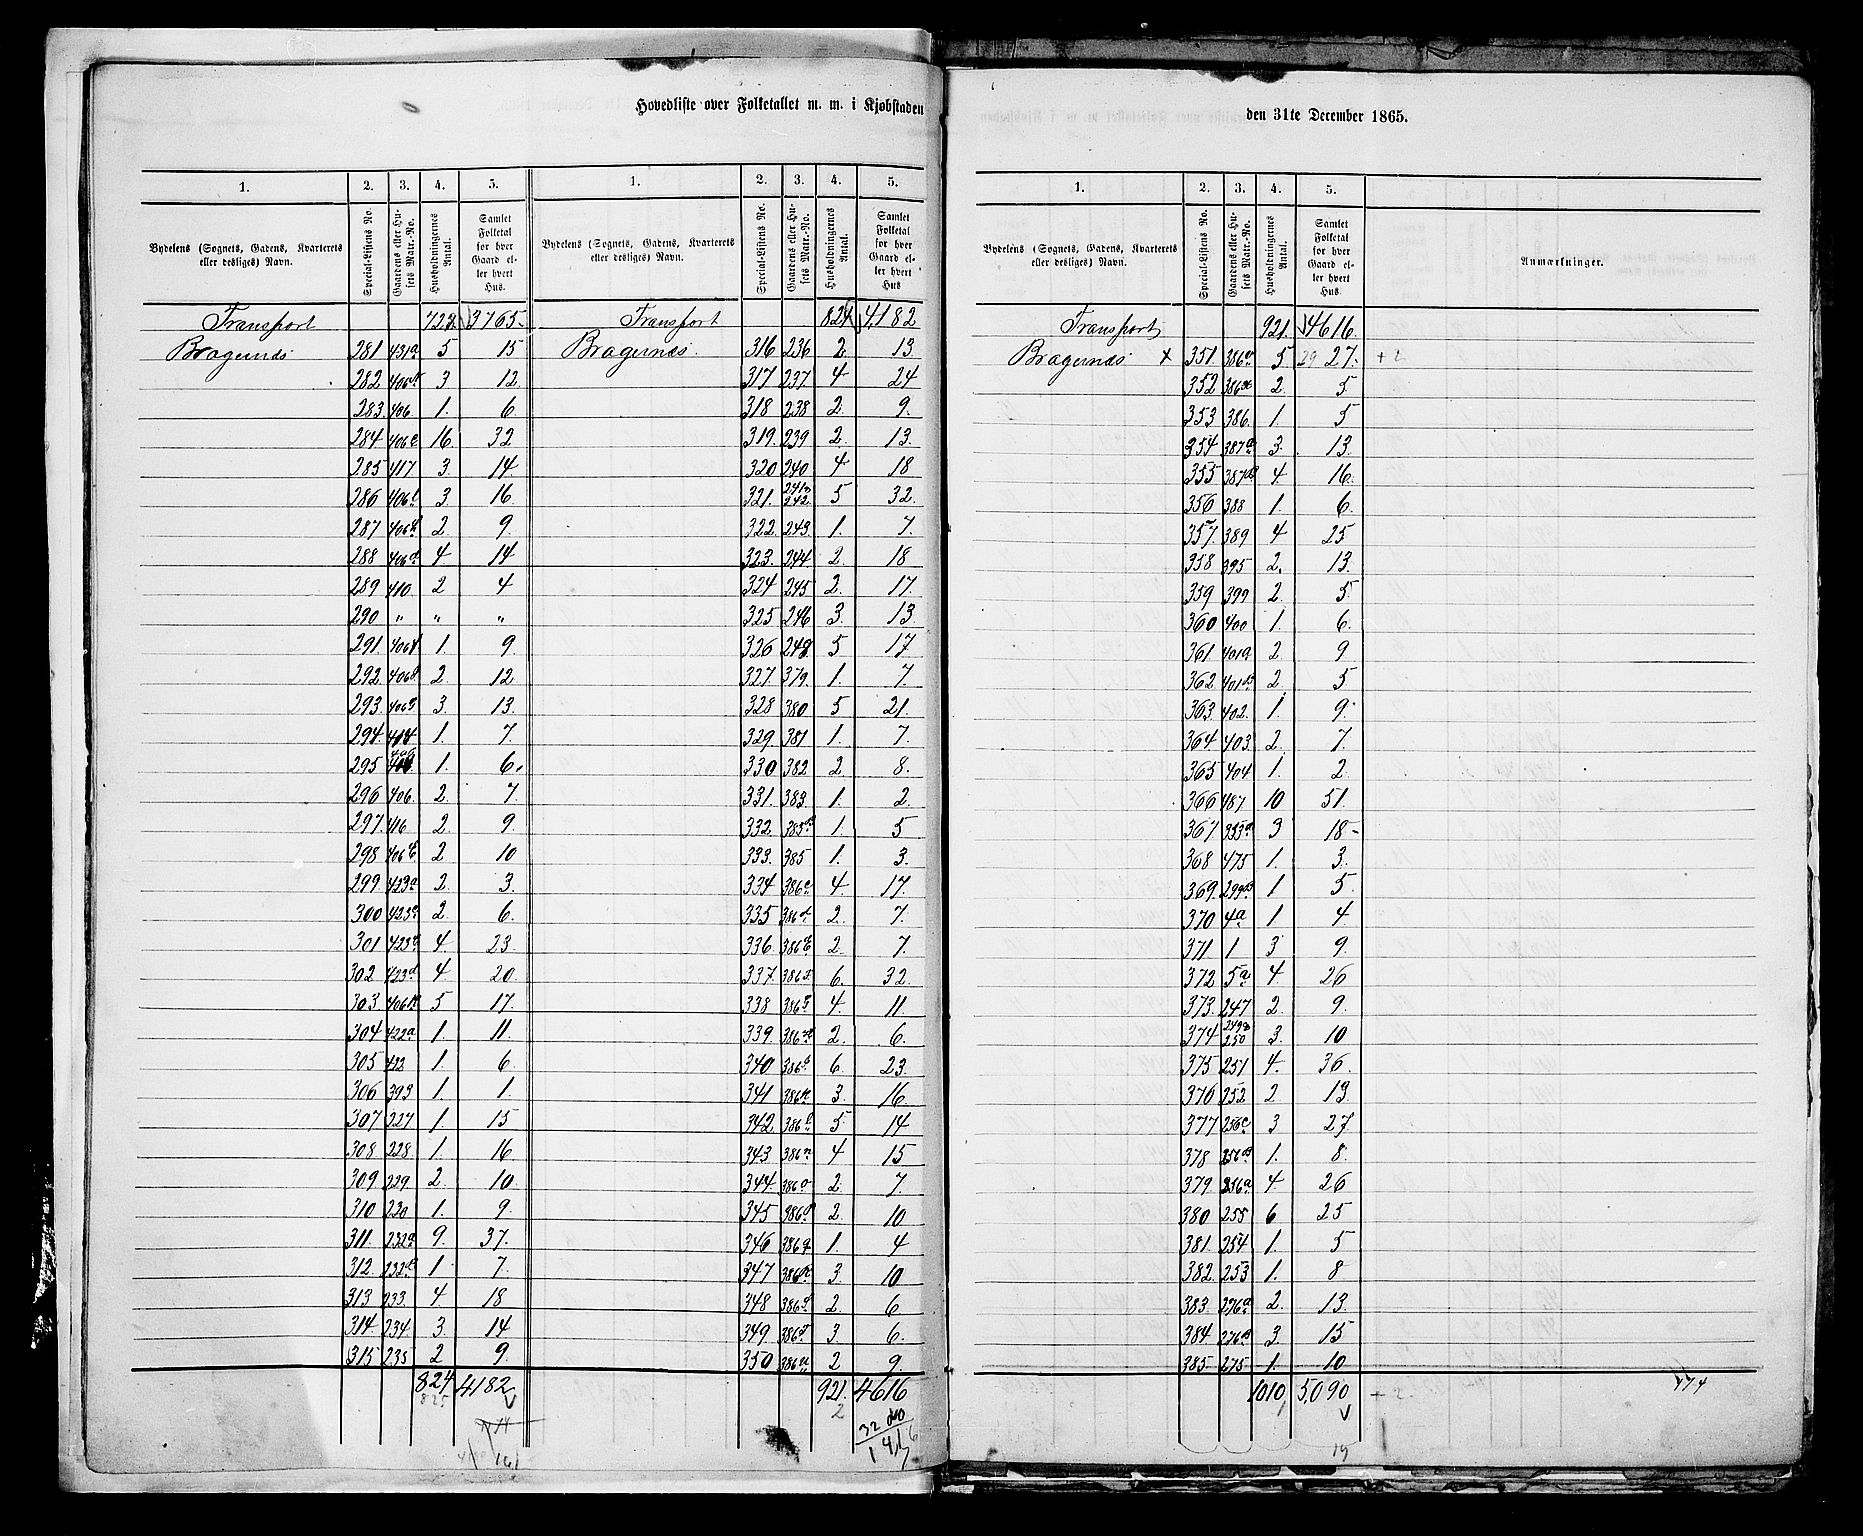 Hovedliste over Folketallet m. m. i Kjøbstaden
den 31te December 1865.
1. 2. 3. 4. 5. 1. 2. 3. 4. 5.
Bydelens (Sognets, Gadens, Kvarterets eller desliges) Navn. Special-Listens No. Gaardens eller Husets Matr.-No. Husholdningernes Antal. Samlet Folketal for hver Gaard eller hvert Hus. Bydelens (Sognets, Gadens, Kvarterets eller desliges) Navn. Special-Listens No. Gaardens eller Husets Matr.-No. Husholdningernes Antal. Samlet Folketal for hver Gaard eller hvert Hus
Transport 3765 Transport 824 4182
Bragernæs 281 431a 5 15 Bragernæs 316 236 2 13
282 3 12 317 237 4 24
283 406 1 6 318 238 2 9
284 406 16 32 319 239 2 13
285 417 3 14 320 240 4 18
286 406 3 16 321 241 242 5 32
287 406 2 9 322 243 1 7
288 406 4 14 323 244 2 18
289 410 2 4 324 245 2 17
290 " " " 325 246 3 13
291 406 1 9 326 248 5 17
292 406 2 12 327 379 1 7
293 406 3 13 328 380 5 21
294 414 1 7 329 381 1 7
295 1 6 330 382 2 8
296 406 2 7 331 383 1 2
297 416 2 9 332 385 1 5
298 406 2 10 333 385 1 3
299 423a 2 3 334 386 4 17
300 423 2 6 335 386 2 7
301 423 4 23 336 386 2 7
302 423d 4 20 337 386 6 32
303 406 5 17 338 386 4 11
304 422a 1 11 339 386 2 6
305 422 1 6 340 386 6 23
306 393 1 1 341 386 3 16
307 227 1 15 342 386 5 14
308 228 1 16 343 386 4 15
309 229 2 10 344 386 2 7
310 230 1 9 345 386 2 10
311 232a 9 37 346 386 1 4
312 232 1 7 347 386 3 10
313 233 4 18 348 386 2 6
314 234 3 14 349 386 3 6
315 235 2 9 350 386 2 9
824 4182 921 4616
825 2
1. 2. 3. 4. 5.
Bydelens (Sognets, Gadens, Kvarterets eller desliges) Navn. Special-Listens No. Gaardens eller Husets Matr.-No. Husholdningernes Antal. Samlet Folketal for hver Gaard eller hvert Hus. Anmærkninger.
Transport 921 4616
Bragernæs x 351 386 5 29 27 + 2
352 386 2 5
353 386 1 5
354 387a 3 13
355 387 4 16
356 388 1 6
357 389 4 25
358 395 2 13
359 399 2 5
360 400 1 6
361 401a 2 9
362 401 2 5
363 402 1 9
364 403 2 7
365 404 1 2
366 487 10 51
367 353a 3 18
368 475 1 3
369 299 1 5
370 4a 1 4
371 1 3 9
372 5a 4 26
373 247 2 9
374 249 250 3 10
375 251 4 36
376 252 2 13
377 256c 3 27
378 256 1 8
379 256a 4 26
380 255 6 25
381 254 1 5
382 253 1 8
383 276a 2 13
384 276 3 15
385 275 1 10
1010 5090 + 2
19